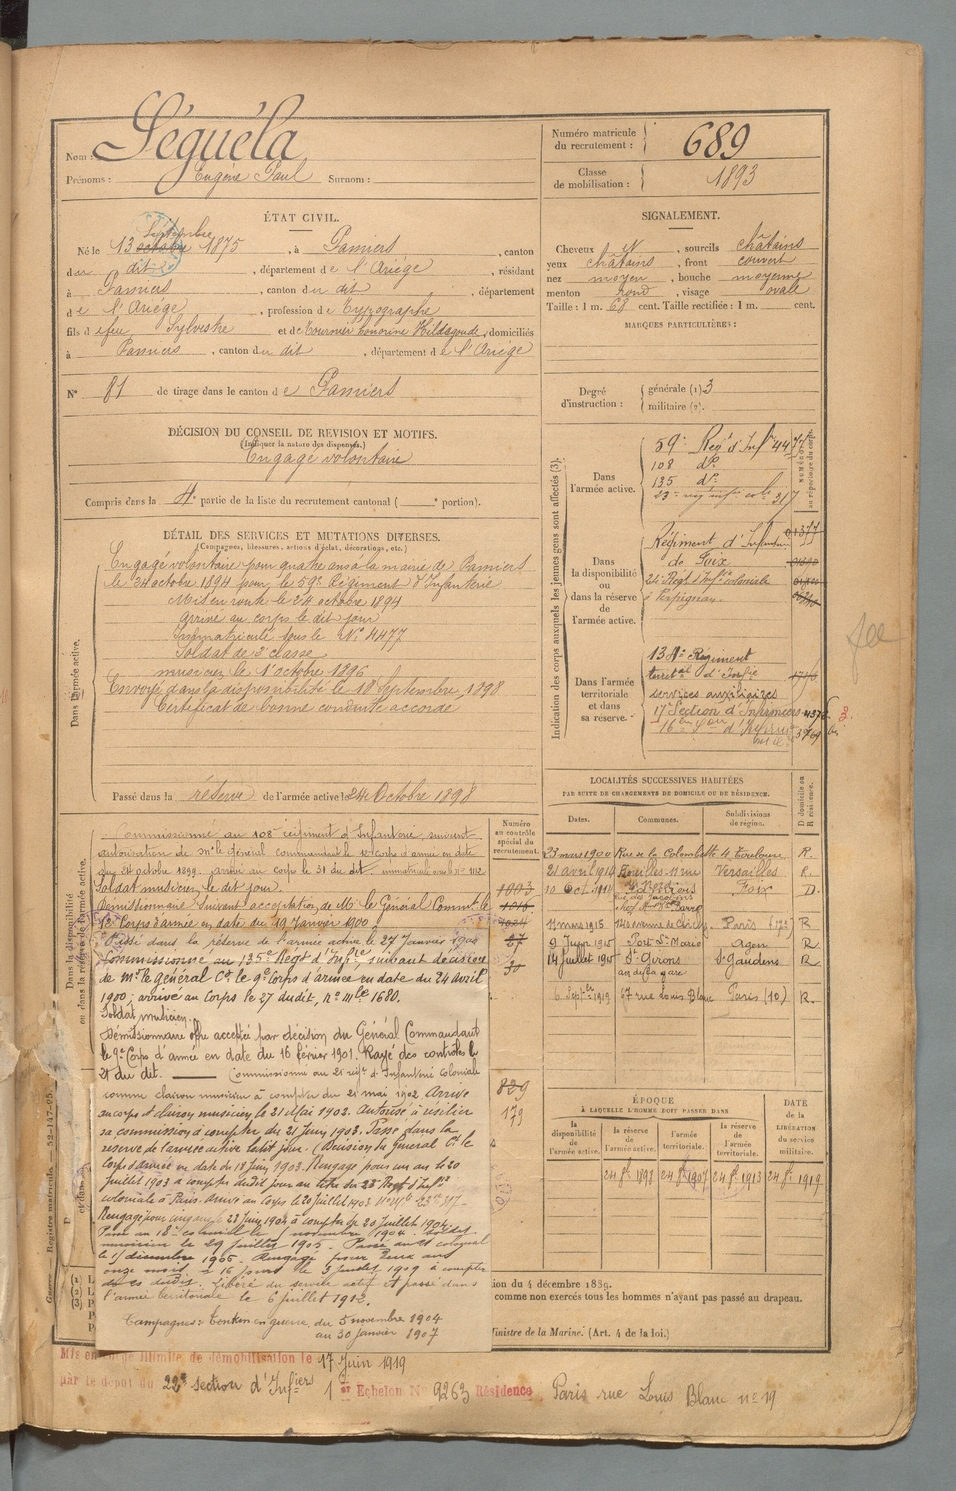 Nom : Séguéla
Prénoms : Eugène Paul Surnom :
Numéro matricule du recrutement : 689
Classe de mobilisation : 1893
ÉTAT CIVIL.
Septembre
Né le 13 octobre 1875, à Pamiers, canton
du dit, département de l'Ariège, résidant
à Pamiers, canton du dit, département
de l'Ariège, profession de Typographe
fils de feu Sylvestre et de Tournier honorine Hildegonde, domiciliés
à Pamiers, canton du dit, département de l'Ariège
N° 81 de tirage dans le canton de Pamiers
SIGNALEMENT.
Cheveux et, sourcils châtains
yeux châtains, front couvert
nez moyen, bouche moyenne
menton rond, visage ovale
Taille : 1 m. 68 cent. Taille rectifiée : 1 m. cent.
MARQUES PARTICULIÈRES :
Degré d'instruction : générale (1) 3
militaire (2).
DÉCISION DU CONSEIL DE REVISION ET MOTIFS.
(Indiquer la nature des dispenses.)
Engagé volontaire
Compris dans la 4e partie de la liste du recrutement cantonal ( e portion).
DÉTAIL DES SERVICES ET MUTATIONS DIVERSES.
(Campagnes, blessures, actions d'éclat, décorations, etc.)
Dans l'armée active.
Engagé volontaire pour quatre ans à la mairie de Pamiers
le 24 octobre 1894 pour le 59e Régiment d'Infanterie
Mis en route le 24 octobre 1894
arrivé au corps le dit jour
Immatriculé sous le N° 4477
Soldat de 2e classe
musicien le 1er octobre 1896
Envoyé dans la disponibilité le 18 Septembre 1898
Certificat de bonne conduite accordé
Passé dans la réserve de l'armée active le 24 Octobre 1898
Indication des corps auxquels les jeunes gens sont affectés (3).
NUMÉROS au répertoire du corps.
Dans l'armée active.
59e Régt d'Infie 4477
108 do
135 do
23e rég infie cole 317
Dans la disponibilité ou dans la réserve de l'armée active.
Régiment d'Infanterie
de Foix
24e Régt d'Infie coloniale
à Perpignan
Dans l'armée territoriale et dans sa réserve.
134e Régiment
territal d'Infie
services auxiliaires
17e Section d'Infirmiers
LOCALITÉS SUCCESSIVES HABITÉES
PAR SUITE DE CHANGEMENTS DE DOMICILE OU DE RÉSIDENCE.
Dates. Communes. Subdivisions de région. D domicile ou R résidence.
23 mars 1900 Rue de la Colombette 4 Toulouse R.
21 avril 1914 Versailles R.
10 Oct. 1914 Foix D.
Paris R
Port Ste Marie Agen R
14 Juillet 1915 St Girons St Gaudens R
au de la gare
6 Septbre 1919 67 rue Louis Blanc Paris (10) R.
Dans la disponibilité ou dans la réserve de l'armée active.
Numéro au contrôle spécial du recrutement.
Commissionné au 108e régiment d'Infanterie, suivant
autorisation de Mr le général commandant le 12e corps d'armée en date
du 24 octobre 1899. arrivé au corps le 31 du dit
Soldat musicien le dit jour.
Démissionnaire suivant acceptation de Mr le Général Commt le
12e Corps d'armée en date du 19 Janvier 1900
Passé dans la réserve de l'armée active le 27 Janvier 1900
Commissionné au 135e Régt d'Infie, suivant décision
de Mr le Général Ct le 9e Corps d'armée en date du 24 avril
1900; arrivé au Corps le 27 du dit, n° mle 1680.
Soldat musicien.
Démissionnaire offre acceptée par décision du Général Commandant
le 9e Corps d'armée en date du 16 février 1901. Rayé des contrôles le
21 du dit. Commissionné au 21e régt d'Infanterie coloniale
comme clairon musicien à compter du 21 mai 1902. Arrivé
au corps et clairon musicien le 21 Mai 1902. Autorisé à résilier
sa commission à compter du 21 Juin 1903. Passé dans la
réserve de l'armée active le dit jour. (Décision du Général Ct le
Corps d'armée en date du 18 juin 1903. Rengagé pour un an le 20
Juillet 1903 à compter du dit jour au titre du 23e Régt d'Infie
coloniale à Paris. Arrivé au corps le 20 Juillet 1903
Rengagé pour cinq ans le 23 Juin 1904 à compter du 20 Juillet 1904.
Passé au 18e colonial le novembre 1904. Soldat
musicien le 29 juillet 1905. Passé au colonial
le 1er décembre 1906. Rengagé pour Deux ans
onze mois 16 jours le 3 juillet 1909 à compter
du 20 dudit. Libéré du service actif et passé dans
l'armée territoriale le 6 juillet 1912.
Campagnes : Tonkin en guerre, du 5 novembre 1904
au 30 janvier 1907
1003
1016
1024
27
30
829
179
ÉPOQUE
À LAQUELLE L'HOMME DOIT PASSER DANS
la disponibilité de l'armée active. la réserve de l'armée active. l'armée territoriale. la réserve de l'armée territoriale.
DATE de la LIBÉRATION du service militaire.
24 8e 1898 24 8e 1907 24 8e 1913 24 8e 1919
ion du 4 décembre 1889.
comme non exercés tous les hommes n'ayant pas passé au drapeau.
inistre de la Marine. (Art. 4 de la loi.)
Registre matricule. — 52-147-95.
Mis en congé illimité de démobilisation le 17 Juin 1919
par le dépôt du 22e section d'Infiers 1er Echelon N° 9263 Résidence Paris rue Louis Blanc n° 19